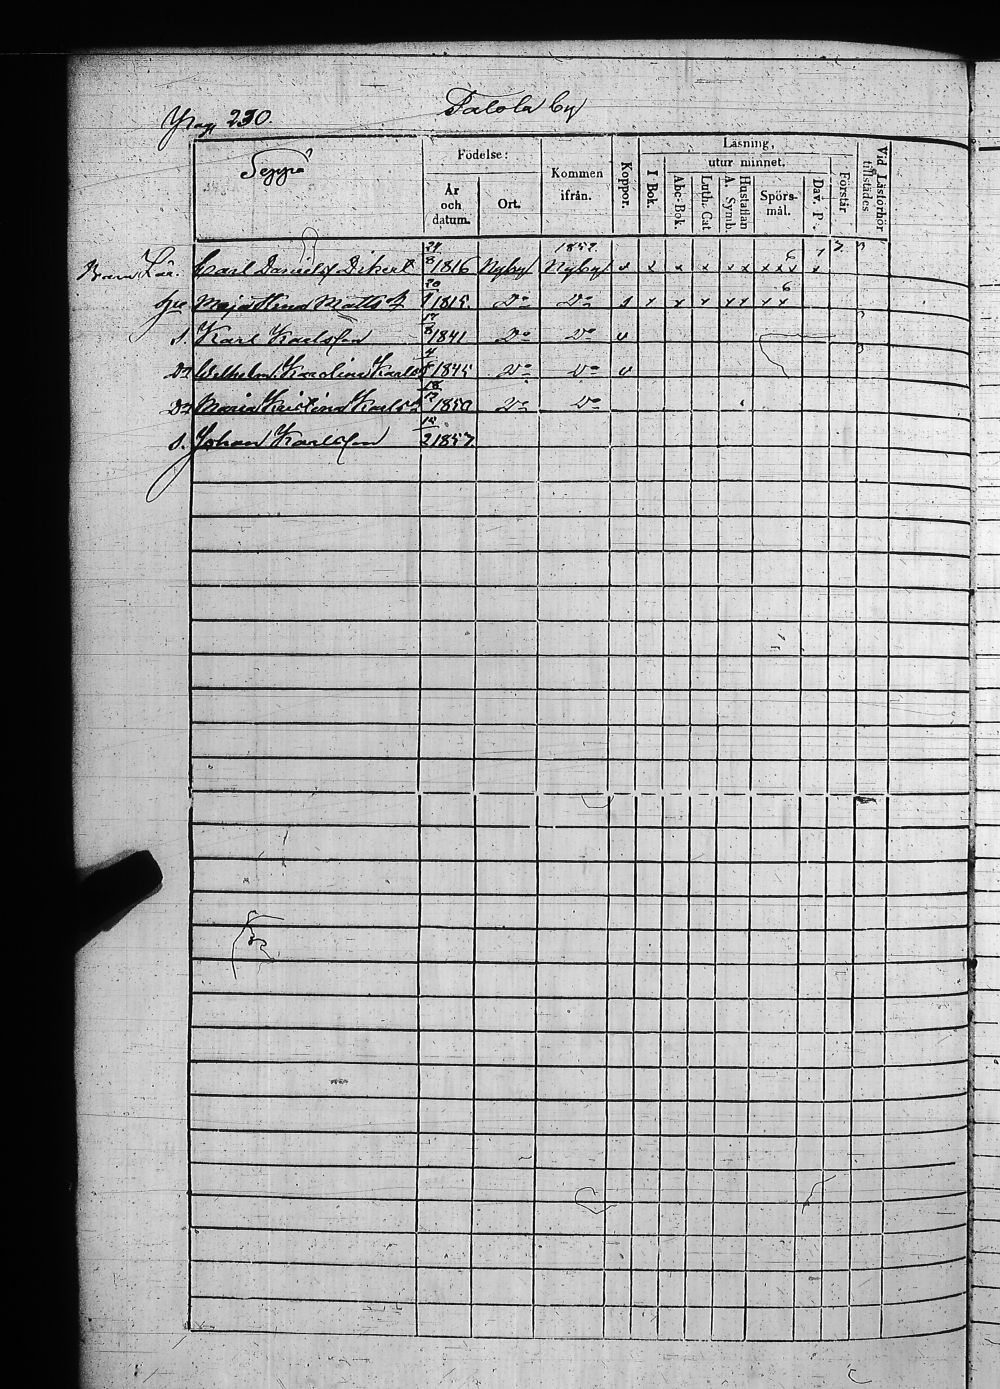 Pag. 230.
Talola by
Seppä
Födelse:
År och datum.
Ort.
Kommen ifrån.
Koppor.
Läsning,
I Bok.
utur minnet.
Abc-Bok.
Luth. Cat
Hustaflan A. Symb.
Spörsmål.
Dav. P.
Förstår
Vid Läsförhör tillstädes
Carl Danielss Dikert 24/8 1816 Nyby 1852. Nyby v x x x x x x x x 6 x 7
Hu Maja Stina Matts D 20/1 1815. Do Do s x x x x x x x 6
S. Karl Karlsson 17/8 1841 Do Do v
Dr Wilhelmi Karolina Karls 4/5 1845 Do Do v
Dr Maria Kristina Karls D 18/12 1850 Do Do
S. Johan Karlsson 12/2 1857